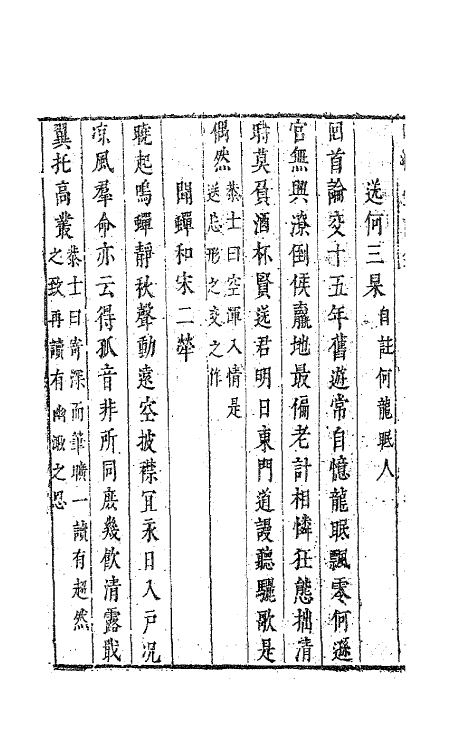 送何三杲自註何龍眠人
回首論交十五年舊遊常自憶龍眠飄零何遜
官無興潦倒侯嬴地最偏老計相憐狂態拙清
時莫負酒杯賢送君明日東門道謾聽驪歌是
偶然恭士曰空渾入情是
送忘形之交之作
聞蟬和宋二犖
曉起鳴蟬靜秋聲動遠空披襟宜永日入戶況
凉風羣命亦云得孤音非所同庶幾飲清露戢
翼托高叢恭士曰寄深而筆曠一讀有超然
之致再讀有幽澂之思